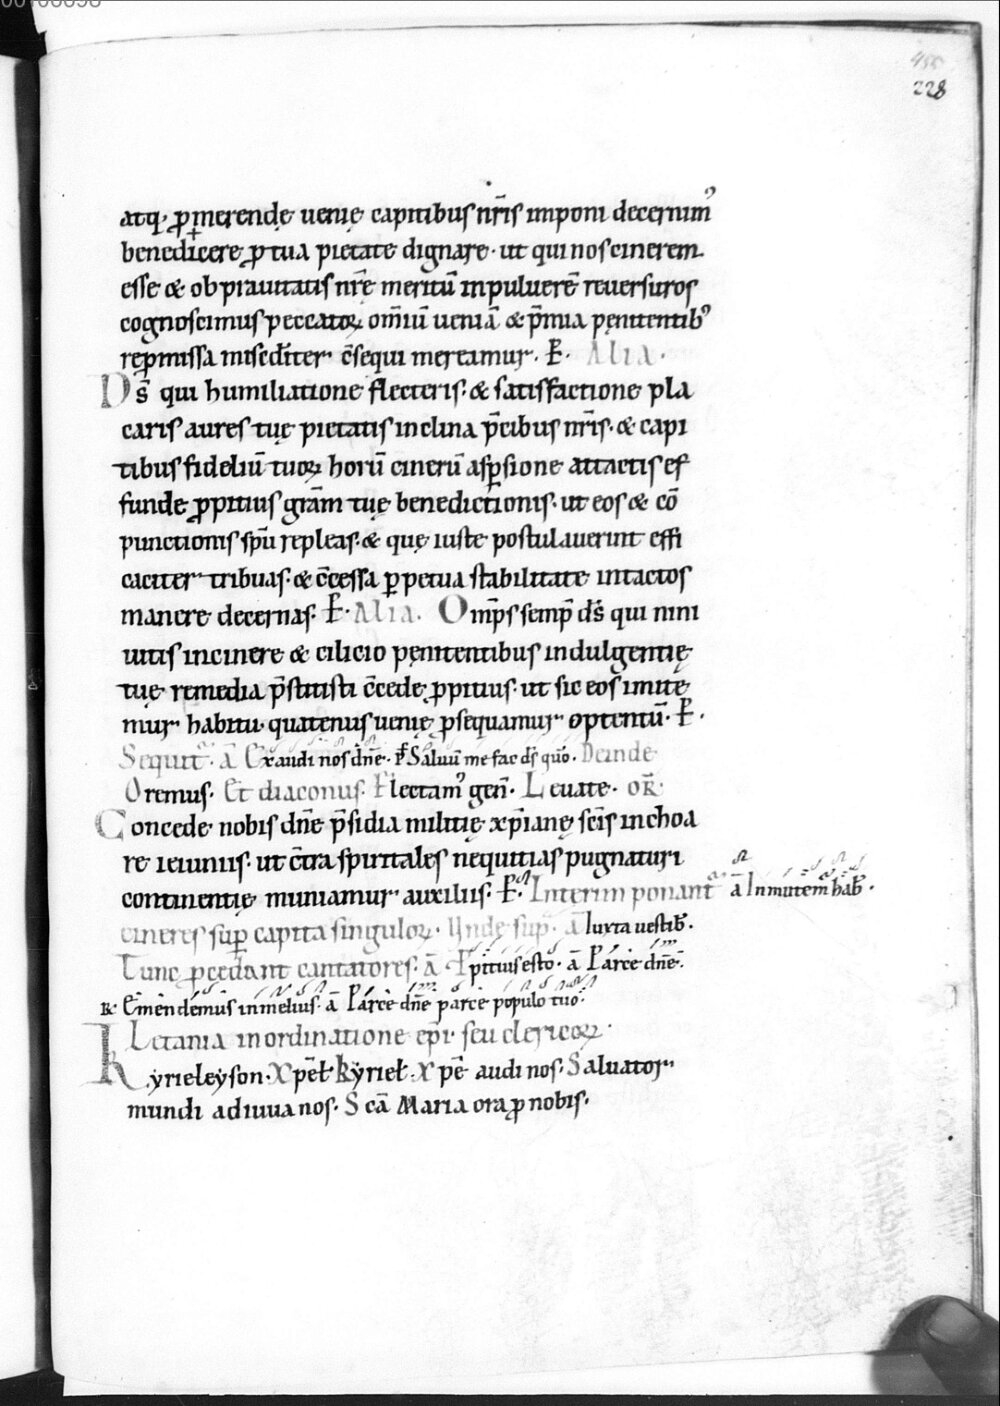 455
228
atq; p̱merendę uenię capitibus nr̄is imponi decernim᾽
benedi+cere p̱ tua pietate dignare· ut qui nos cinerem
esse & ob prauitatis nr̄e meritū in puluerē reuersuros
cognoscimus peccatoꝝ om̄iū ueniā & p̄mia pęnitentib᾽
repmissa misc̄diter c̄sequi mereamur. P̄. Alia.
Ds̄ qui humiliatione flecteris· & satisfactione pla
caris aures tuę pietatis inclina p̄cibus nr̄is· & capi
tibus fideliū tuoꝝ horū cinerū asꝑsione attactis ef
funde ꝓpitius gr̄am tuę benedictionis· ut eos & cō
punctionis sp̄u repleas· & quę iuste postulauerint effi
caciter tribuas· & c̄cessa ꝑpetua stabilitate intactos
manere decernas. P̄· Alia. Om̄ps semp̄ ds̄ qui nini
uitis in cinere & cilicio pęnitentibus indulgentię
tuę remedia p̄stitisti c̄cede ꝓpitius· ut sic eos imitę
mur habitu· quatenus uenię ꝓsequamur optentū. P̄.
Sequit᾽ ā Exaudi nos dn̄e. Ps̄ Saluū me fac ds̄ quo̅. Deinde
Oremus. Et diaconus. Flectam᾽ gen̄. Leuate. OR̄.
Concede nobis dn̄e p̄sidia militię xp̄ianę sc̄is inchoa
re ieiuniis· ut c̄tra spiritales nequitias pugnaturi
continentię muniamur auxiliis. P̄. Interim ponant᾽ ā Inmutem᾽ hab̄.
cineres sup̄ capita singuloꝝ. Unde sup̄. ā Iuxta uestib̄.
Tunc p̱cedant cantatores· ā P̱pitius esto. ā Parce dn̄e.
R. Emendemus in melius. ā Parce dn̄e parce populo tuo.
Letania in ordinatione ep̄i seu clericoꝝ.
Kyrieleyson. Xp̄eł Kyrieł. Xp̄e audi nos. Saluator
mundi adiuua nos. Sc̄a Maria ora ꝓ nobis.